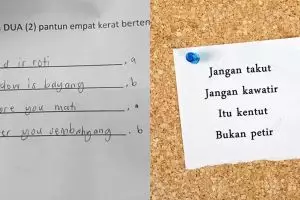 DUA (2) pantun empat kerat berten
d is roti , a
dow is bayang , b
ore you mati , a
er you sembahyang . b
Jangan takut
Jangan kawatir
Itu kentut
Bukan petir